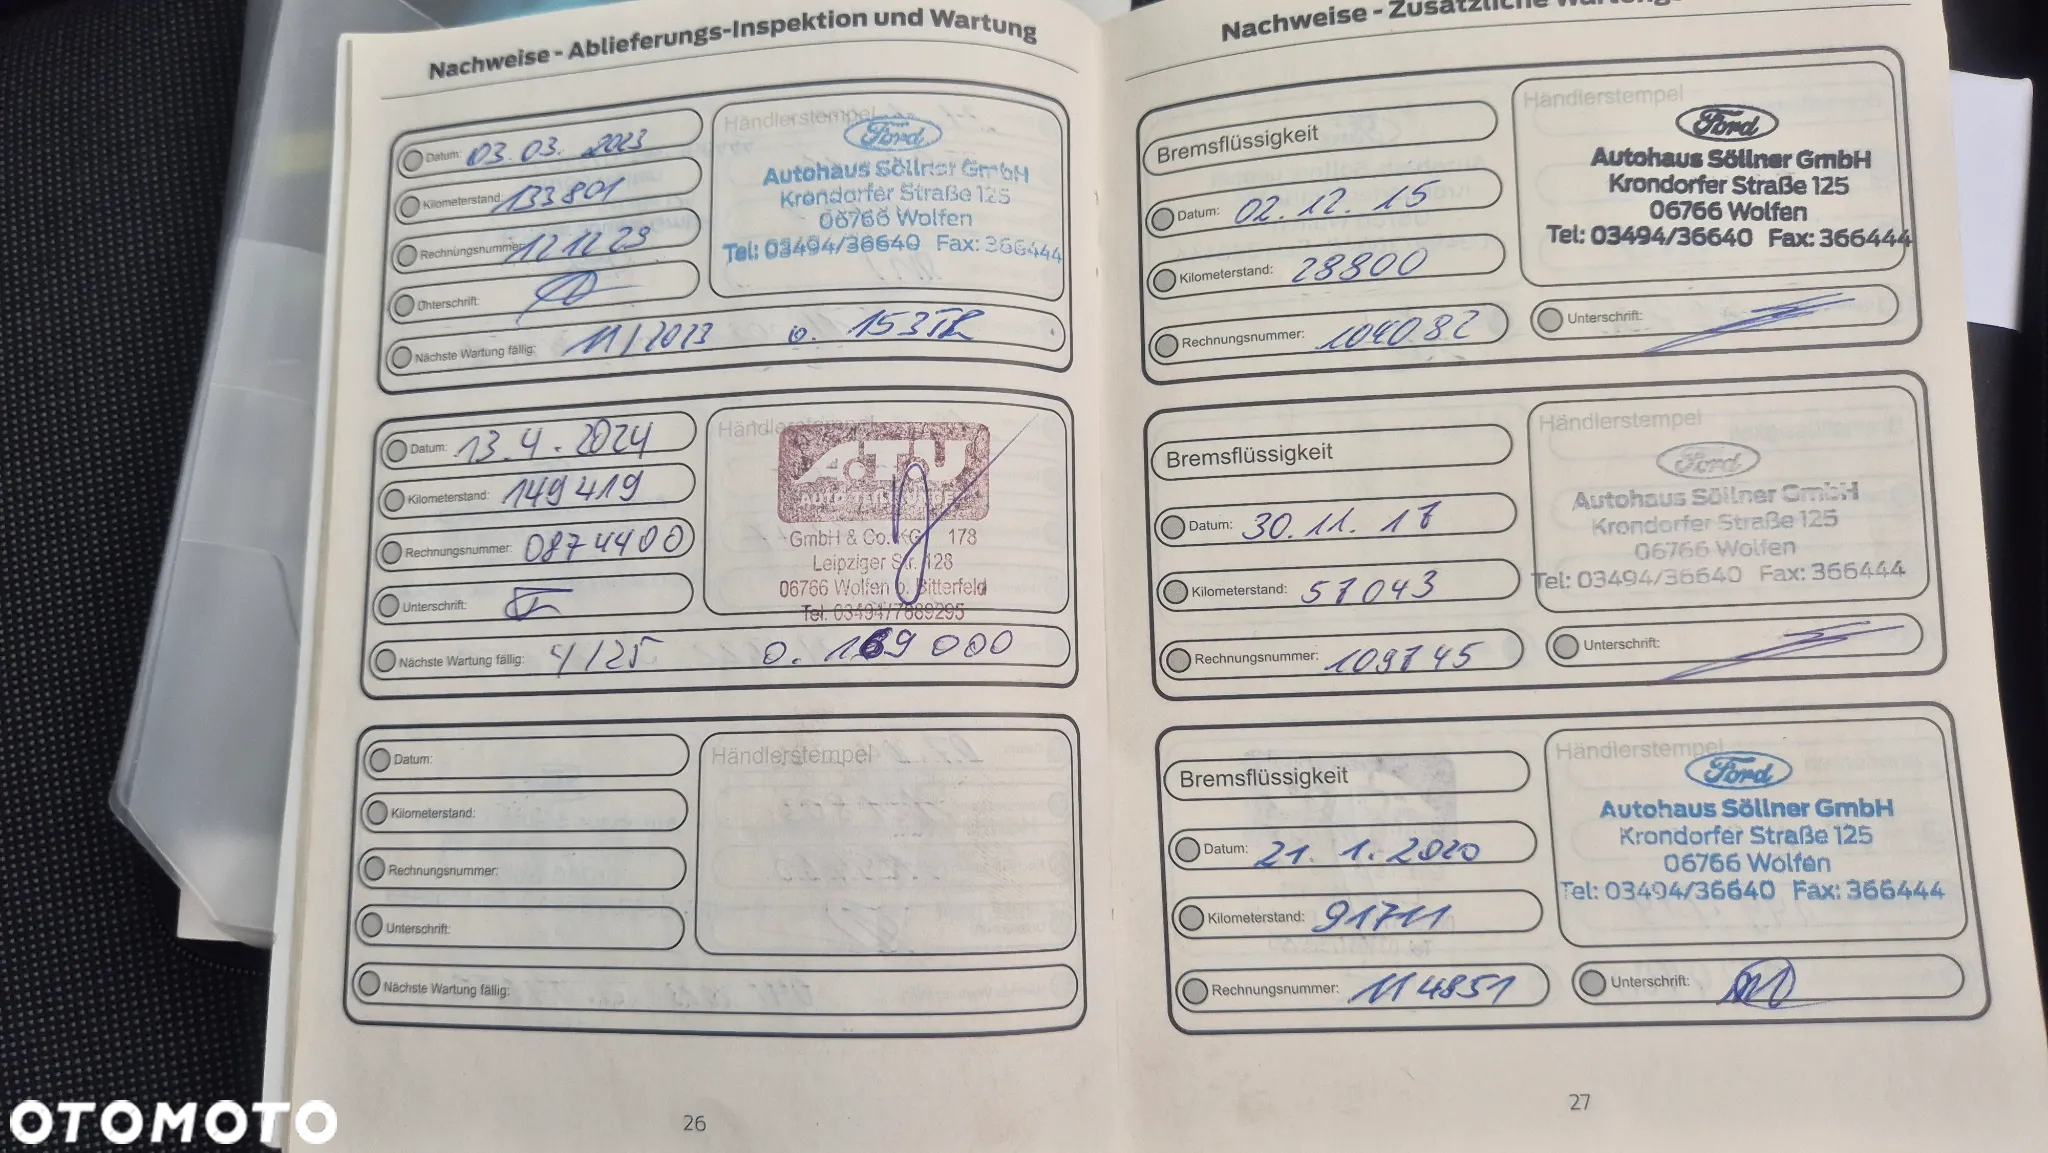 Nachweise - Ablieferungs-Inspektion und Wartung
Datum: 03.03.2023
Kilometerstand: 133801
Rechnungsnummer: 121229
Unterschrift:
Nächste Wartung fällig: 11/2023 o. 153
Händlerstempel
Ford
Autohaus Söllner GmbH
Krondorfer Straße 125
06766 Wolfen
Tel: 03494/36640 Fax: 366444
Datum: 13.4.2024
Kilometerstand: 149419
Rechnungsnummer: 0874400
Unterschrift:
Nächste Wartung fällig: 4/25 o. 169000
Händlerstempel
A.T.U
AUTO-TEILE-UNGER
GmbH & Co. KG 178
Leipziger Str. 128
06766 Wolfen b. Bitterfeld
Tel. 03494/7689295
Datum:
Kilometerstand:
Rechnungsnummer:
Unterschrift:
Nächste Wartung fällig:
Händlerstempel
26
Nachweise - Zusätzliche
Bremsflüssigkeit
Datum: 02.12.15
Kilometerstand: 28800
Rechnungsnummer: 104082
Händlerstempel
Ford
Autohaus Söllner GmbH
Krondorfer Straße 125
06766 Wolfen
Tel: 03494/36640 Fax: 366444
Unterschrift:
Bremsflüssigkeit
Datum: 30.11.17
Kilometerstand: 57043
Rechnungsnummer: 109745
Händlerstempel
Ford
Autohaus Söllner GmbH
Krondorfer Straße 125
06766 Wolfen
Tel: 03494/36640 Fax: 366444
Unterschrift:
Bremsflüssigkeit
Datum: 21.1.2020
Kilometerstand: 91711
Rechnungsnummer: 114851
Händlerstempel
Ford
Autohaus Söllner GmbH
Krondorfer Straße 125
06766 Wolfen
Tel: 03494/36640 Fax: 366444
Unterschrift:
27
OTOMOTO